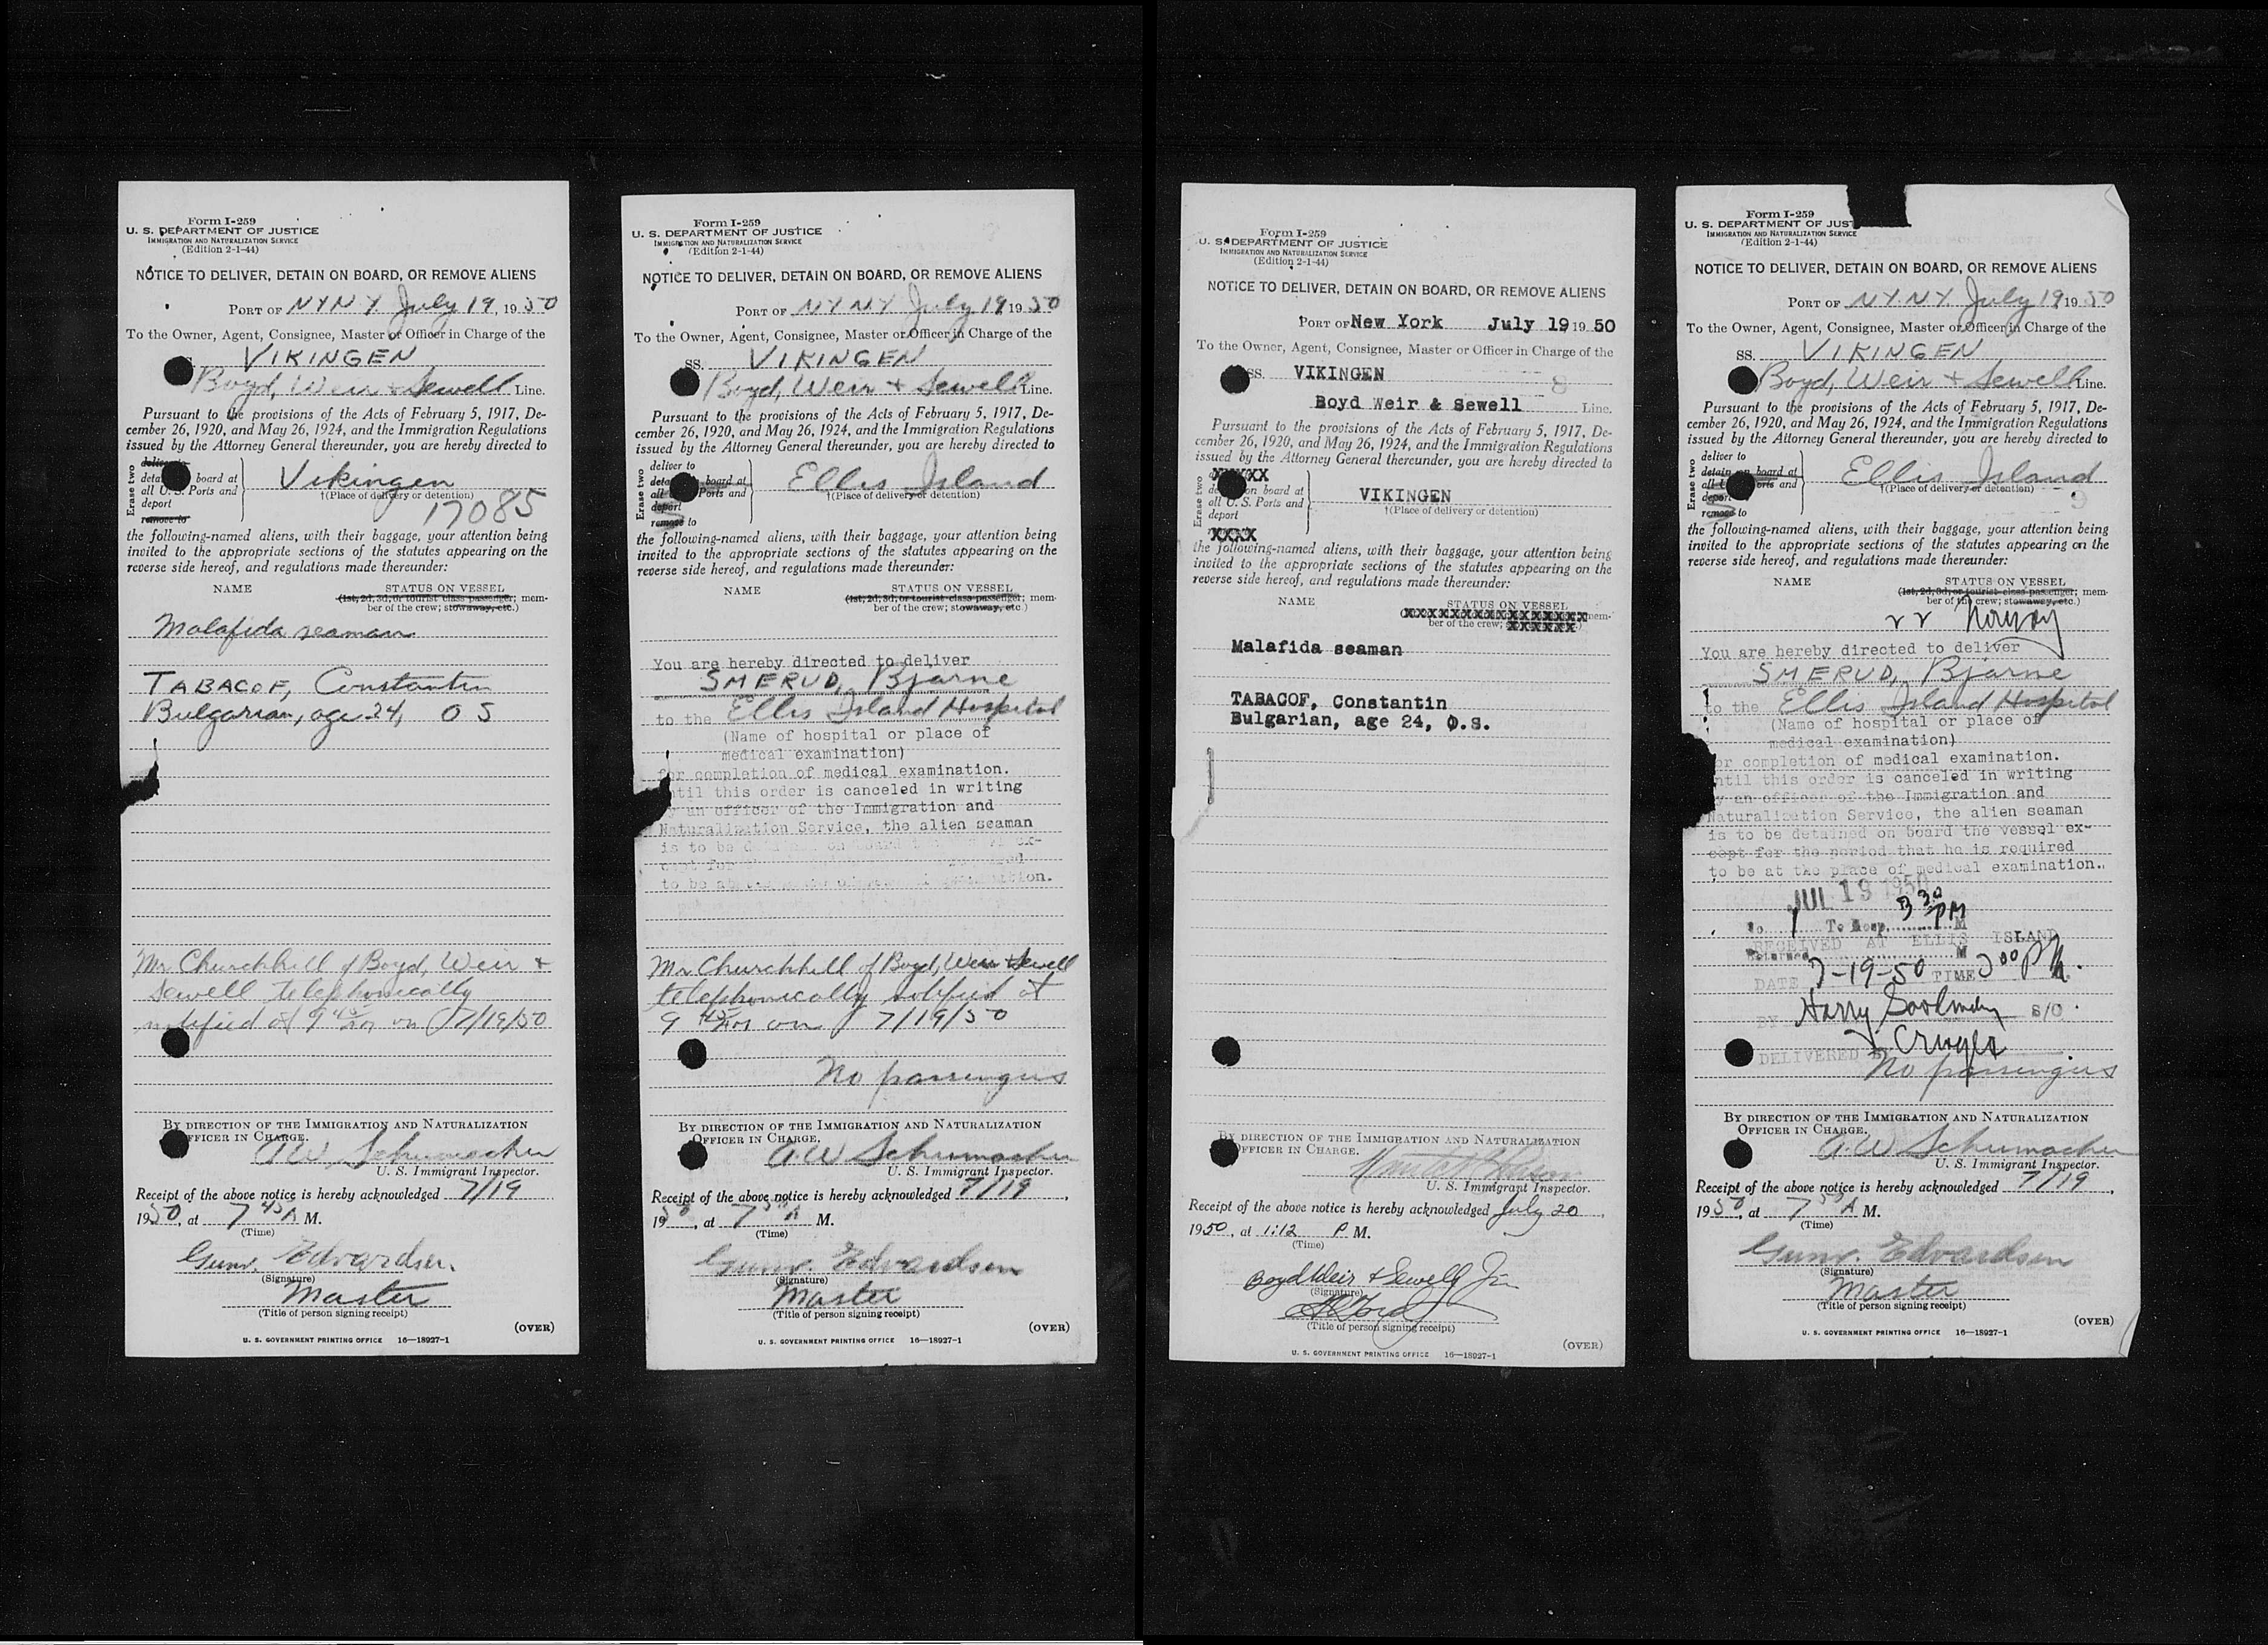 Form I-259
U. S. DEPARTMENT OF JUSTICE
IMMIGRATION AND NATURALIZATION SERVICE
(Edition 2-1-44)
NOTICE TO DELIVER, DETAIN ON BOARD, OR REMOVE ALIENS
PORT OF N Y N Y July 19, 1950
To the Owner, Agent, Consignee, Master or Officer in Charge of the
VIKINGEN
Boyd, Weir + Sewell Line.
Pursuant to the provisions of the Acts of February 5, 1917, De-
cember 26, 1920, and May 26, 1924, and the Immigration Regulations
issued by the Attorney General thereunder, you are hereby directed to
Erase two
deliver to
detain board at
all U. S. Ports and
deport
remove to
Vikingen
†(Place of delivery or detention)
17085
the following-named aliens, with their baggage, your attention being
invited to the appropriate sections of the statutes appearing on the
reverse side hereof, and regulations made thereunder:
NAME STATUS ON VESSEL
(1st, 2d, 3d, or tourist class passenger; mem-
ber of the crew; stowaway, etc.)
Malafida seaman
TABACOF, Constantin
Bulgarian, age 24, O S
Mr Churchhill of Boyd, Weir +
Sewell telephonically
notified at 9 45 AM on 7/19/50
BY DIRECTION OF THE IMMIGRATION AND NATURALIZATION
OFFICER IN CHARGE.
A.W. Schumacher
U. S. Immigrant Inspector.
Receipt of the above notice is hereby acknowledged 7/19
1950, at 7 45 A M.
(Time)
Gunv. Edvardsen.
(Signature)
Master
(Title of person signing receipt)
(OVER)
U. S. GOVERNMENT PRINTING OFFICE 16—18927-1
Form I-259
U. S. DEPARTMENT OF JUSTICE
IMMIGRATION AND NATURALIZATION SERVICE
(Edition 2-1-44)
NOTICE TO DELIVER, DETAIN ON BOARD, OR REMOVE ALIENS
PORT OF N Y N Y July 19 1950
To the Owner, Agent, Consignee, Master or Officer in Charge of the
SS. VIKINGEN
Boyd, Weir + Sewell Line.
Pursuant to the provisions of the Acts of February 5, 1917, De-
cember 26, 1920, and May 26, 1924, and the Immigration Regulations
issued by the Attorney General thereunder, you are hereby directed to
Erase two
deliver to
detain board at
all Ports and
deport
remove to
Ellis Island
†(Place of delivery or detention)
the following-named aliens, with their baggage, your attention being
invited to the appropriate sections of the statutes appearing on the
reverse side hereof, and regulations made thereunder:
NAME STATUS ON VESSEL
(1st, 2d, 3d, or tourist class passenger; mem-
ber of the crew; stowaway, etc.)
You are hereby directed to deliver
SMERUD, Bjarne
to the Ellis Island Hospital
(Name of hospital or place of
medical examination)
for completion of medical examination.
until this order is canceled in writing
by an officer of the Immigration and
Naturalization Service, the alien seaman
is to be detained on board the vessel ex-
cept for the required
to be at the place of medical examination.
Mr Churchhill of Boyd, Weir + Sewell
telephonically notified at
9 45 AM on 7/19/50
No passengers
BY DIRECTION OF THE IMMIGRATION AND NATURALIZATION
OFFICER IN CHARGE.
A.W Schumacher
U. S. Immigrant Inspector.
Receipt of the above notice is hereby acknowledged 7/19,
1950, at 7 50 A M.
(Time)
Gunv. Edvardsen
(Signature)
Master
(Title of person signing receipt)
(OVER)
U. S. GOVERNMENT PRINTING OFFICE 16—18927-1
Form I-259
U. S. DEPARTMENT OF JUSTICE
IMMIGRATION AND NATURALIZATION SERVICE
(Edition 2-1-44)
NOTICE TO DELIVER, DETAIN ON BOARD, OR REMOVE ALIENS
PORT OF New York July 19 19 50
To the Owner, Agent, Consignee, Master or Officer in Charge of the
SS. VIKINGEN
8
Boyd Weir & Sewell Line.
Pursuant to the provisions of the Acts of February 5, 1917, De-
cember 26, 1920, and May 26, 1924, and the Immigration Regulations
issued by the Attorney General thereunder, you are hereby directed to
Erase two
XXXXX
on board at
all U. S. Ports and
deport
XXXX
VIKINGEN
†(Place of delivery or detention)
the following-named aliens, with their baggage, your attention being
invited to the appropriate sections of the statutes appearing on the
reverse side hereof, and regulations made thereunder:
NAME STATUS ON VESSEL
XXXXXXXXXXXXXXXXXX mem-
ber of the crew; XXXXXX.)
Malafida seaman
TABACOF, Constantin
Bulgarian, age 24, O.S.
BY DIRECTION OF THE IMMIGRATION AND NATURALIZATION
OFFICER IN CHARGE.
U. S. Immigrant Inspector.
Receipt of the above notice is hereby acknowledged July 20,
1950, at 1:12 P M.
(Time)
Boyd Weir & Sewell Inc
(Signature)
(Title of person signing receipt)
(OVER)
U. S. GOVERNMENT PRINTING OFFICE 16—18927-1
Form I-259
U. S. DEPARTMENT OF JUST
IMMIGRATION AND NATURALIZATION SERVICE
(Edition 2-1-44)
NOTICE TO DELIVER, DETAIN ON BOARD, OR REMOVE ALIENS
PORT OF N Y N Y. July 19 1950
To the Owner, Agent, Consignee, Master or Officer in Charge of the
SS. VIKINGEN
Boyd, Weir + Sewell Line.
Pursuant to the provisions of the Acts of February 5, 1917, De-
cember 26, 1920, and May 26, 1924, and the Immigration Regulations
issued by the Attorney General thereunder, you are hereby directed to
Erase two
deliver to
detain on board at
all U. Ports and
deport
remove to
Ellis Island
†(Place of delivery or detention)
9
the following-named aliens, with their baggage, your attention being
invited to the appropriate sections of the statutes appearing on the
reverse side hereof, and regulations made thereunder:
NAME STATUS ON VESSEL
(1st, 2d, 3d, or tourist class passenger; mem-
ber of the crew; stowaway, etc.)
Norway
You are hereby directed to deliver
SMERUD, Bjarne
to the Ellis Island Hospital
(Name of hospital or place of
medical examination)
or completion of medical examination.
ntil this order is canceled in writing
y an officer of the Immigration and
Naturalization Service, the alien seaman
is to be detained on board the vessel ex-
cept for the period that he is required
to be at the place of medical examination.
JUL 19 1950
3 30 PM
No. 1 To Hosp. M
RECEIVED AT ELLIS ISLAND
Returned M
DATE 7-19-50 TIME 3 00 P M.
BY Harry S/O.
DELIVERED
No passengers
BY DIRECTION OF THE IMMIGRATION AND NATURALIZATION
OFFICER IN CHARGE.
A.W Schumacher
U. S. Immigrant Inspector.
Receipt of the above notice is hereby acknowledged 7/19,
1950, at 7 50 A M.
(Time)
Gunv. Edvardsen
(Signature)
Master
(Title of person signing receipt)
(OVER)
U. S. GOVERNMENT PRINTING OFFICE 16—18927-1